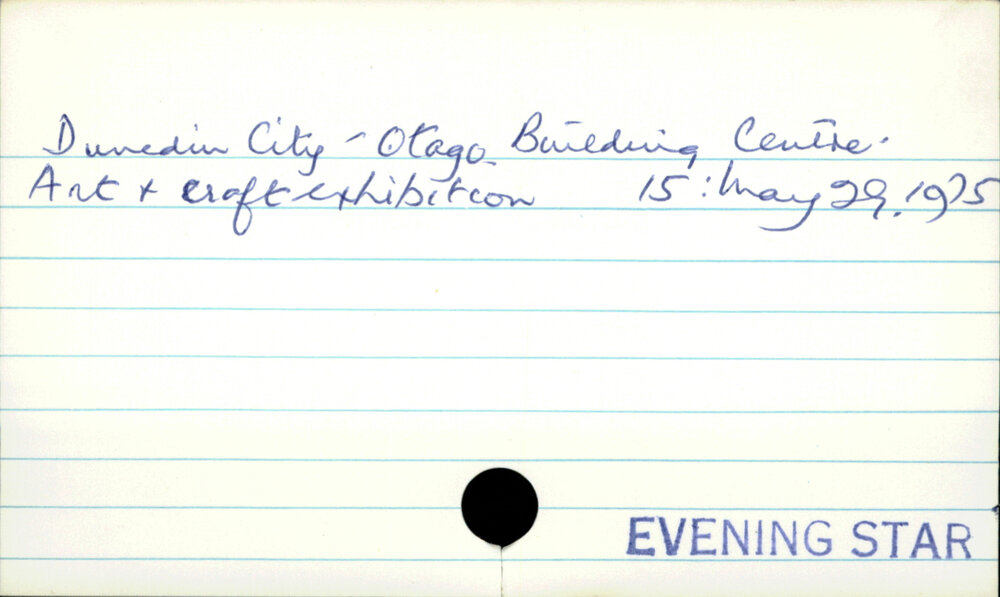 Dunedin City - Otago Building Centre.
Art + craft exhibition 15: May 29, 1975
EVENING STAR